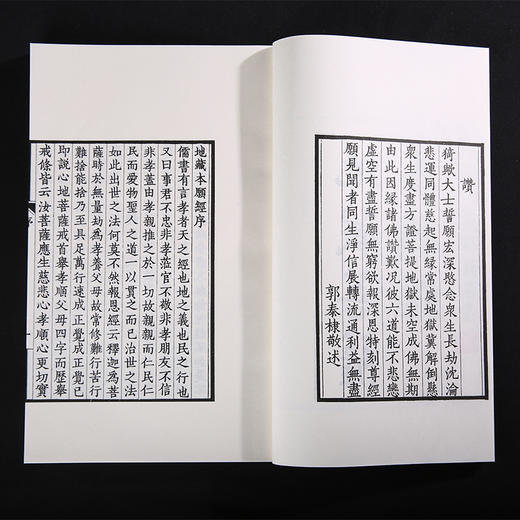 讚
猗歟大士誓願宏深愍念眾生長劫沈淪
悲運同體慈起無緣常處地獄冀解倒懸
眾生度盡方證菩提地獄未空成佛無期
由此因緣諸佛讚歎況彼六道能不悲戀
虛空有盡誓願無窮欲報深恩特刻尊經
願見聞者同生淨信展轉流通利益無盡
郭泰棣敬述
地藏本願經序
儒書有言孝者天之經也地之義也民之行也
又曰事君不忠非孝蒞官不敬非孝朋友不信
非孝蓋由孝親推之於一切故親親而仁民仁
民而愛物聖人之道一以貫之而已治世之法
如此出世之法何莫不然報恩經云釋迦為菩
薩時於無量劫為孝養父母故常修難行苦行
難捨能捨乃至具足萬行速成正覺成正覺已
即說心地菩薩戒首舉孝順父母四字而歷舉
戒條皆云汝菩薩應生慈悲心孝順心更切實
序
一